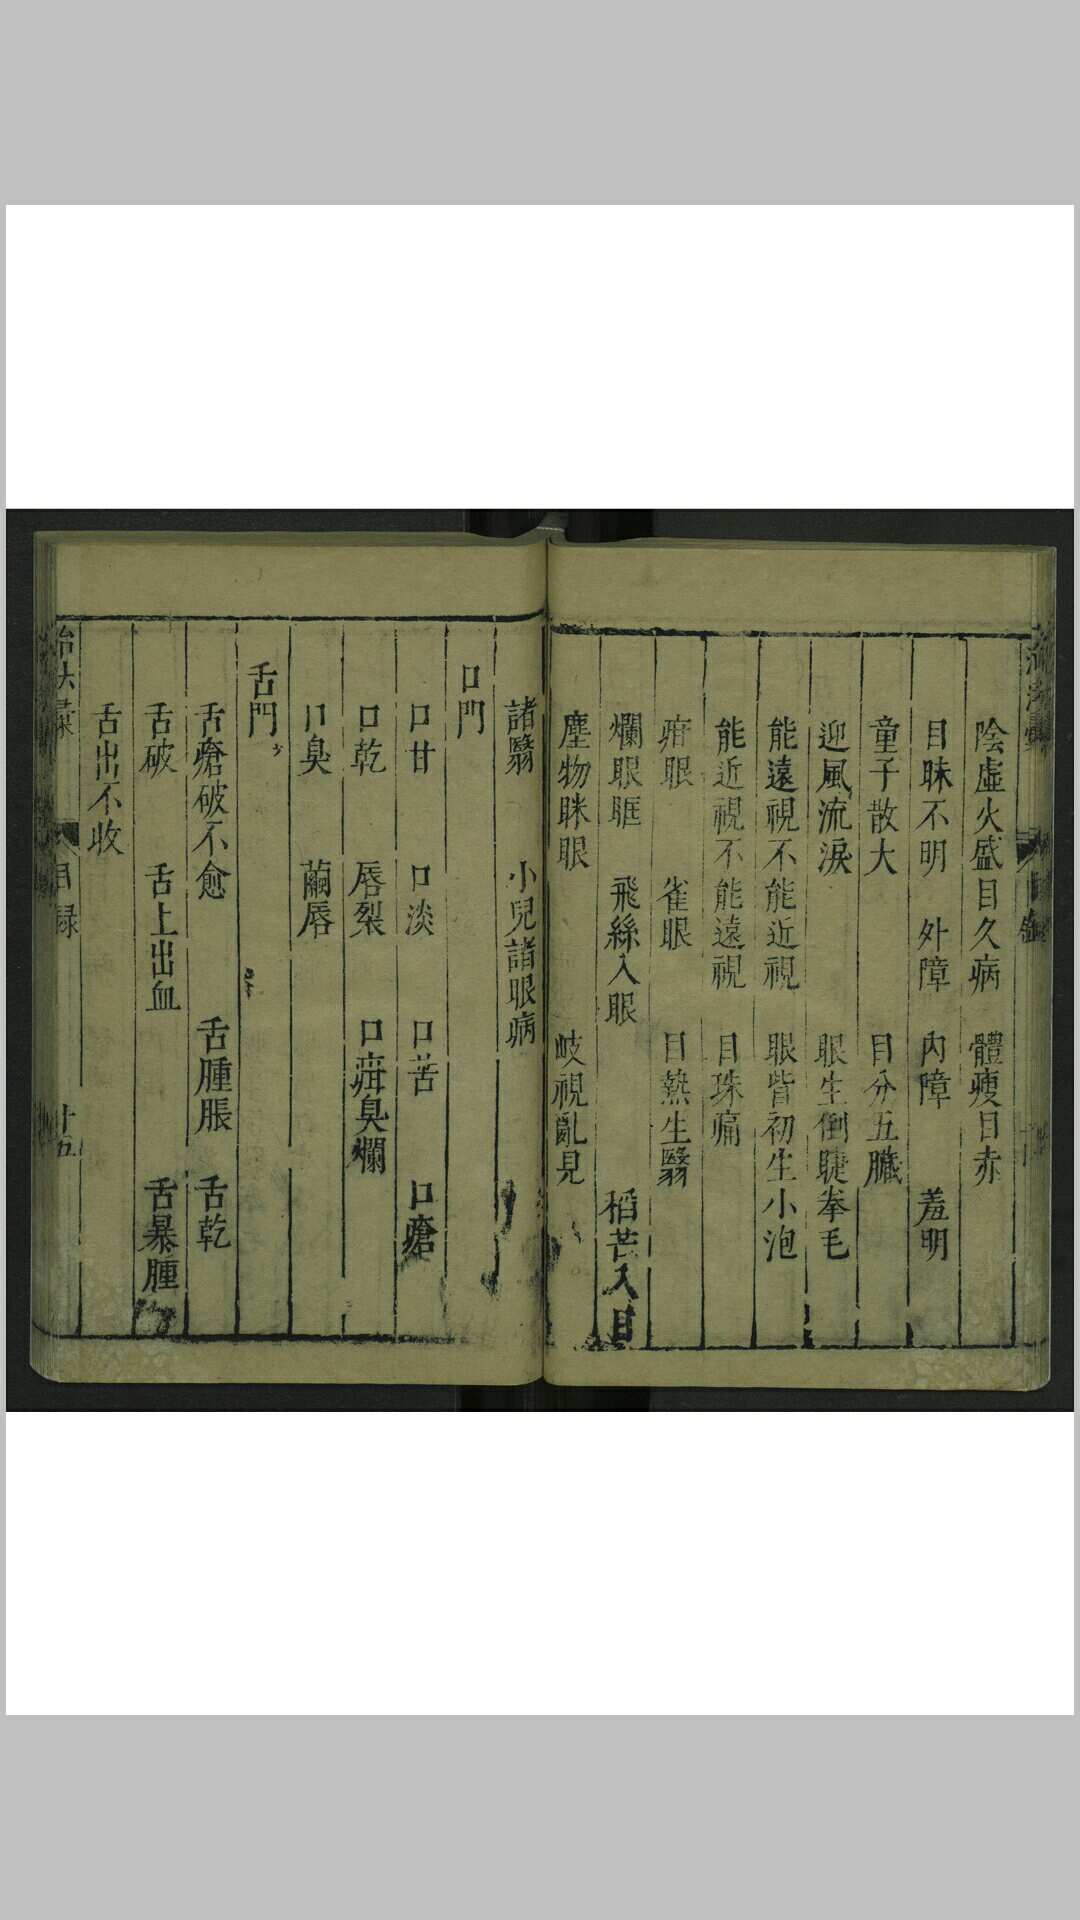 陰虛火盛目久病　體瘦目赤
目昧不明　外障　內障　羞明
童子散大　目分五臟
迎風流淚　眼生倒睫拳毛
能遠視不能近視　眼眥初生小泡
能近視不能遠視　目珠痛
疳眼　雀眼　目熱生翳
爛眼眶　飛絲入眼　稻芒入目
塵物眯眼　岐視亂見
諸翳　小兒諸眼病
口門
口甘　口淡　口苦　口瘡
口乾　唇裂　口疳臭爛
口臭　繭唇
舌門
舌瘡破不愈　舌腫脹　舌乾
舌破　舌上出血　舌暴腫
舌出不收
治法彙　目録　十五